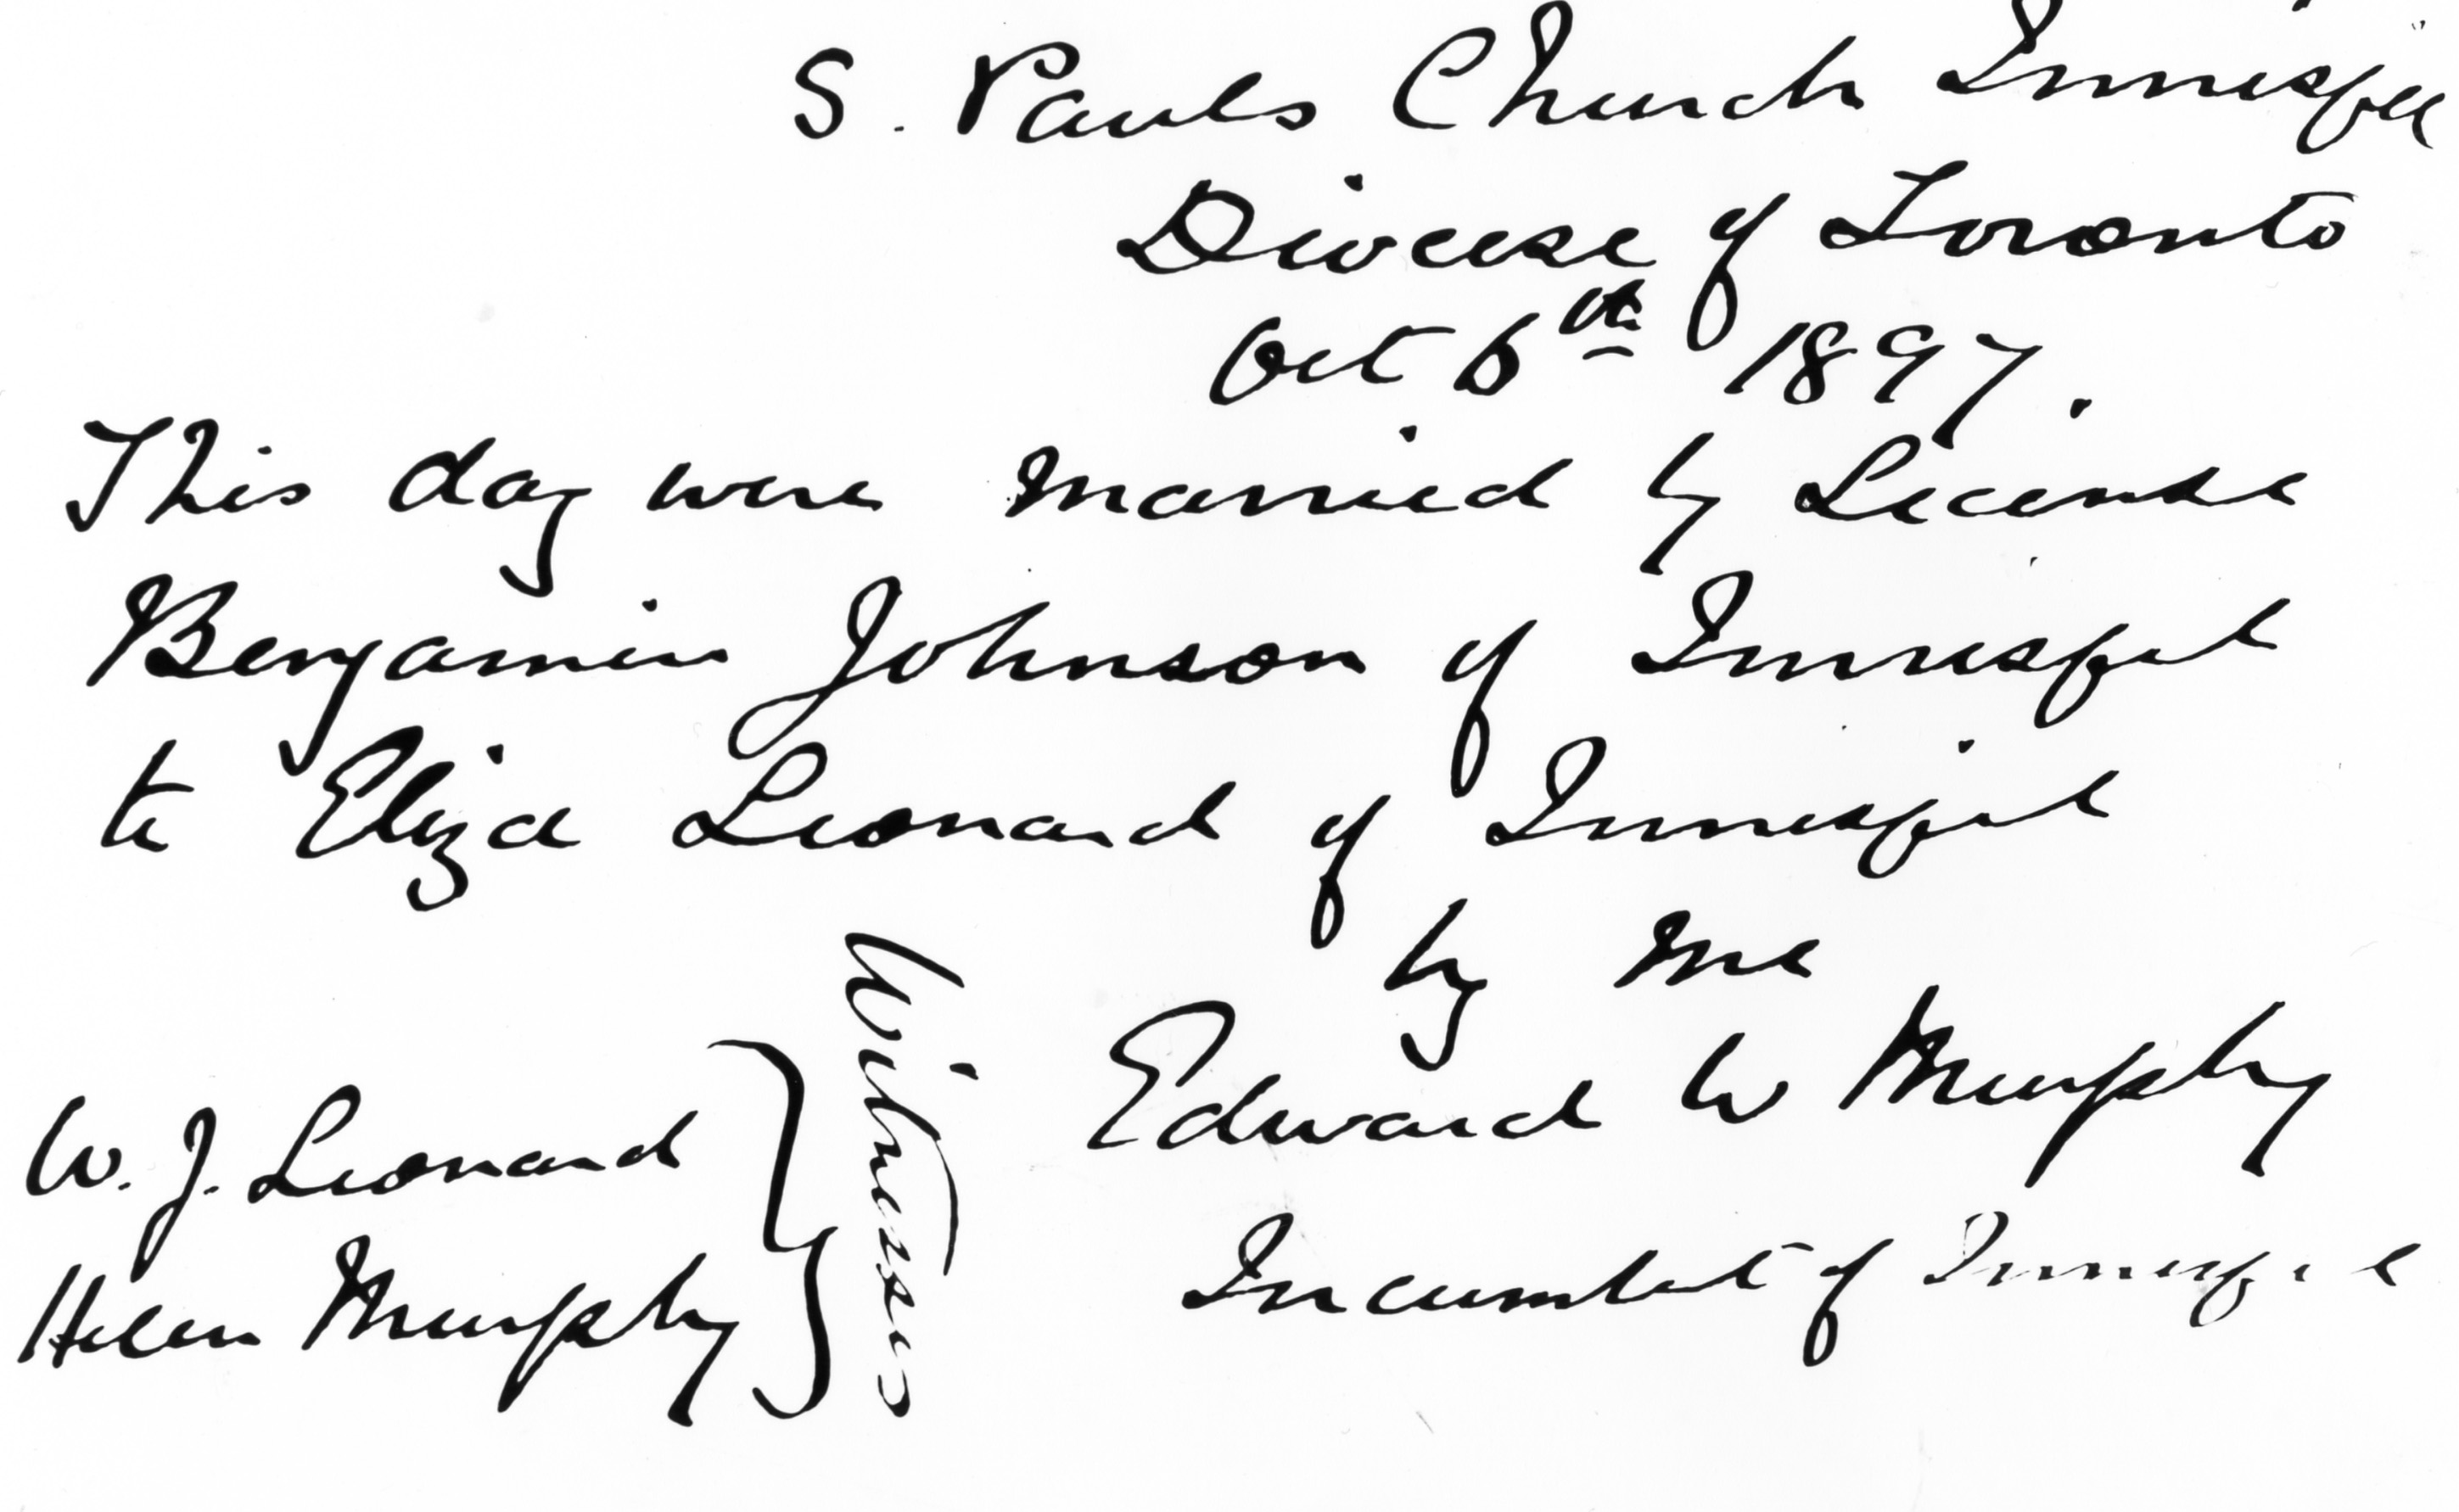 S. Pauls Church Innisfil
Diocese of Toronto
Oct 6th 1897.
This day were married by License
Benjamin Johnson of Innisfil
to Eliza Leonard of Innisfil
by me
Edward W Murphy
Incumbent of Innisfil
W. J. Leonard
Helen Murphy
Witnesses